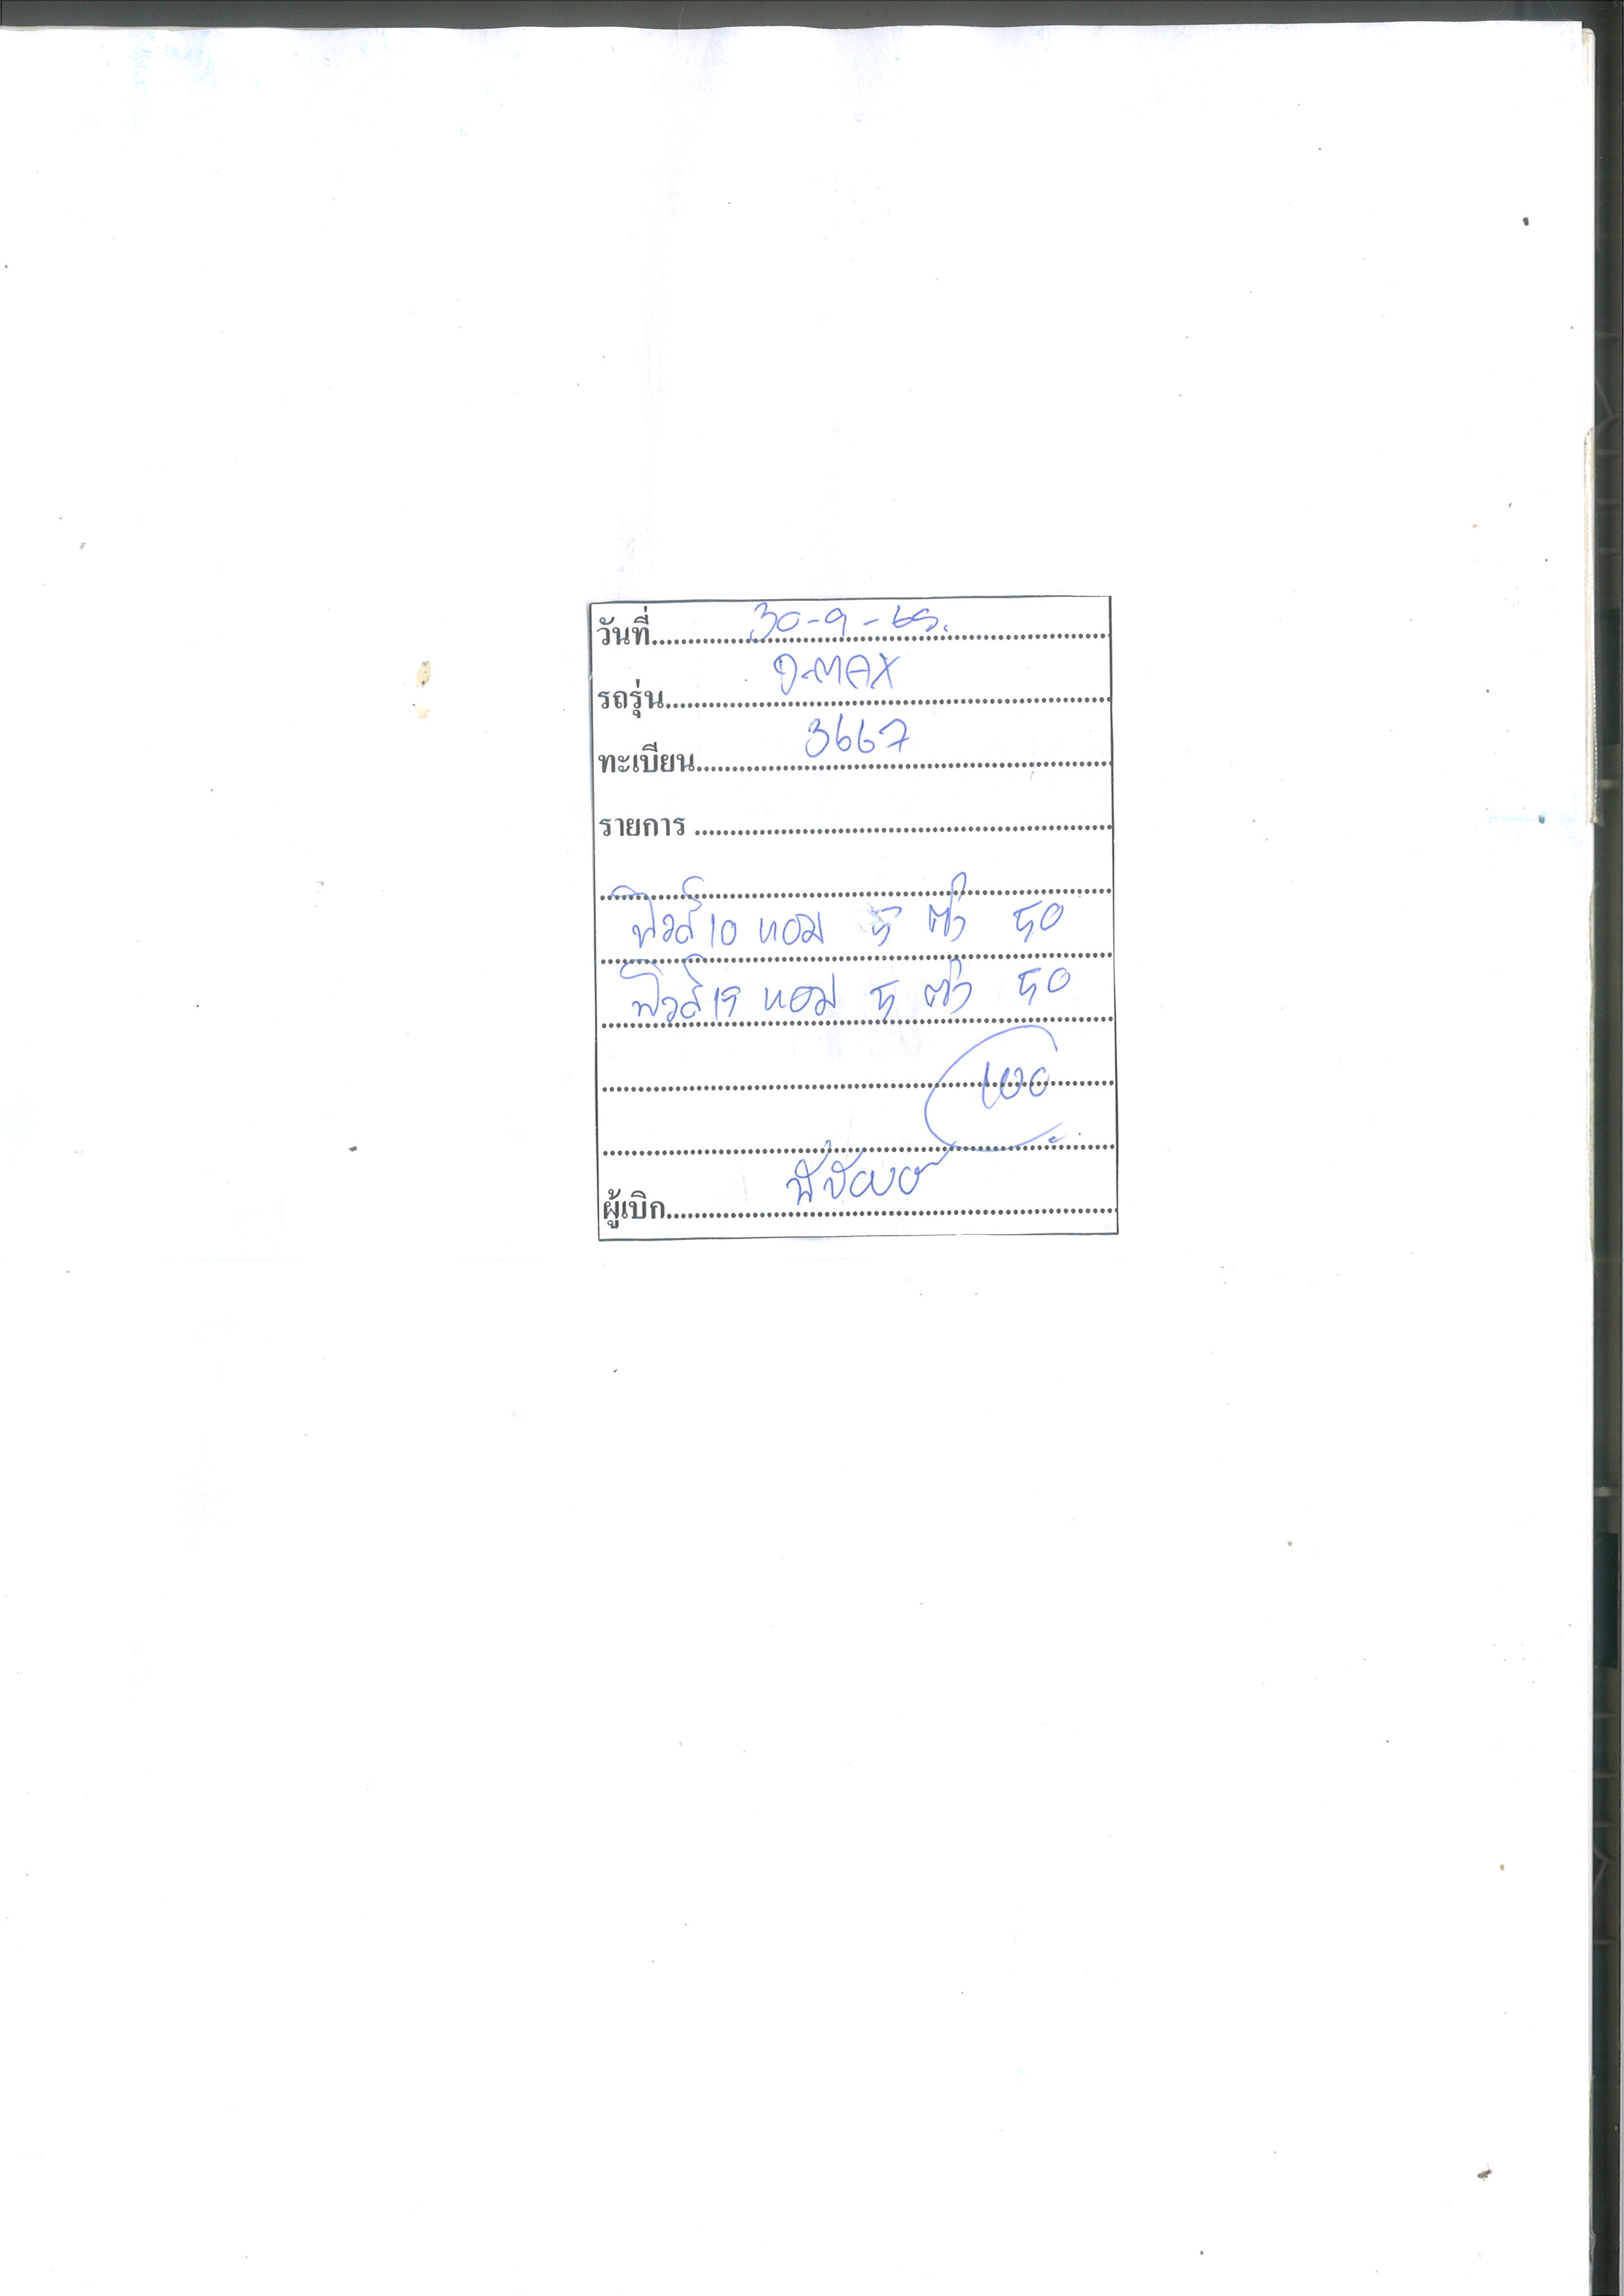 วันที่ 30-9-65.
รถรุ่น D-MAX
ทะเบียน 3667
รายการ
ฟิวส์ 10 หอม 5 ตัว 50
ฟิวส์ 15 หอม 5 ตัว 50
100
ผู้เบิก